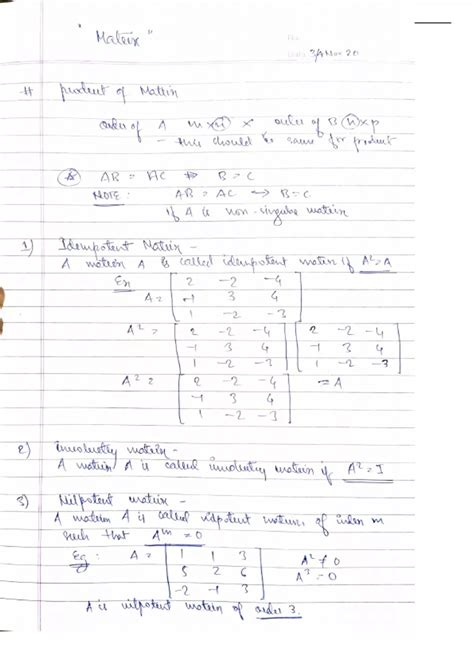 "Matrix"
3/Nov 20
# product of Matrix
order of A m×n × order of B n×p
- this should be same for product
A AB = AC ⇏ B = C
NOTE: AB = AC → B = C
If A is non-singular matrix
1) Idempotent Matrix -
A matrix A is called idempotent matrix if A²=A
Ex
A = [ 2 -2 -4
-1 3 4
1 -2 -3 ]
A² = [ 2 -2 -4 ] [ 2 -2 -4
-1 3 4 -1 3 4
1 -2 -3 1 -2 -3 ]
A² = [ 2 -2 -4 ] = A
-1 3 4
1 -2 -3
2) involuntry matrix -
A matrix A is called involuntry matrix if A²=I
3) Nilpotent matrix -
A matrix A is called nilpotent matrix, of index m
such that A^m = 0
Eg: A = [ 1 1 3 ] A² ≠ 0
5 2 6 A³ = 0
-2 -1 3
A is nilpotent matrix of order 3.